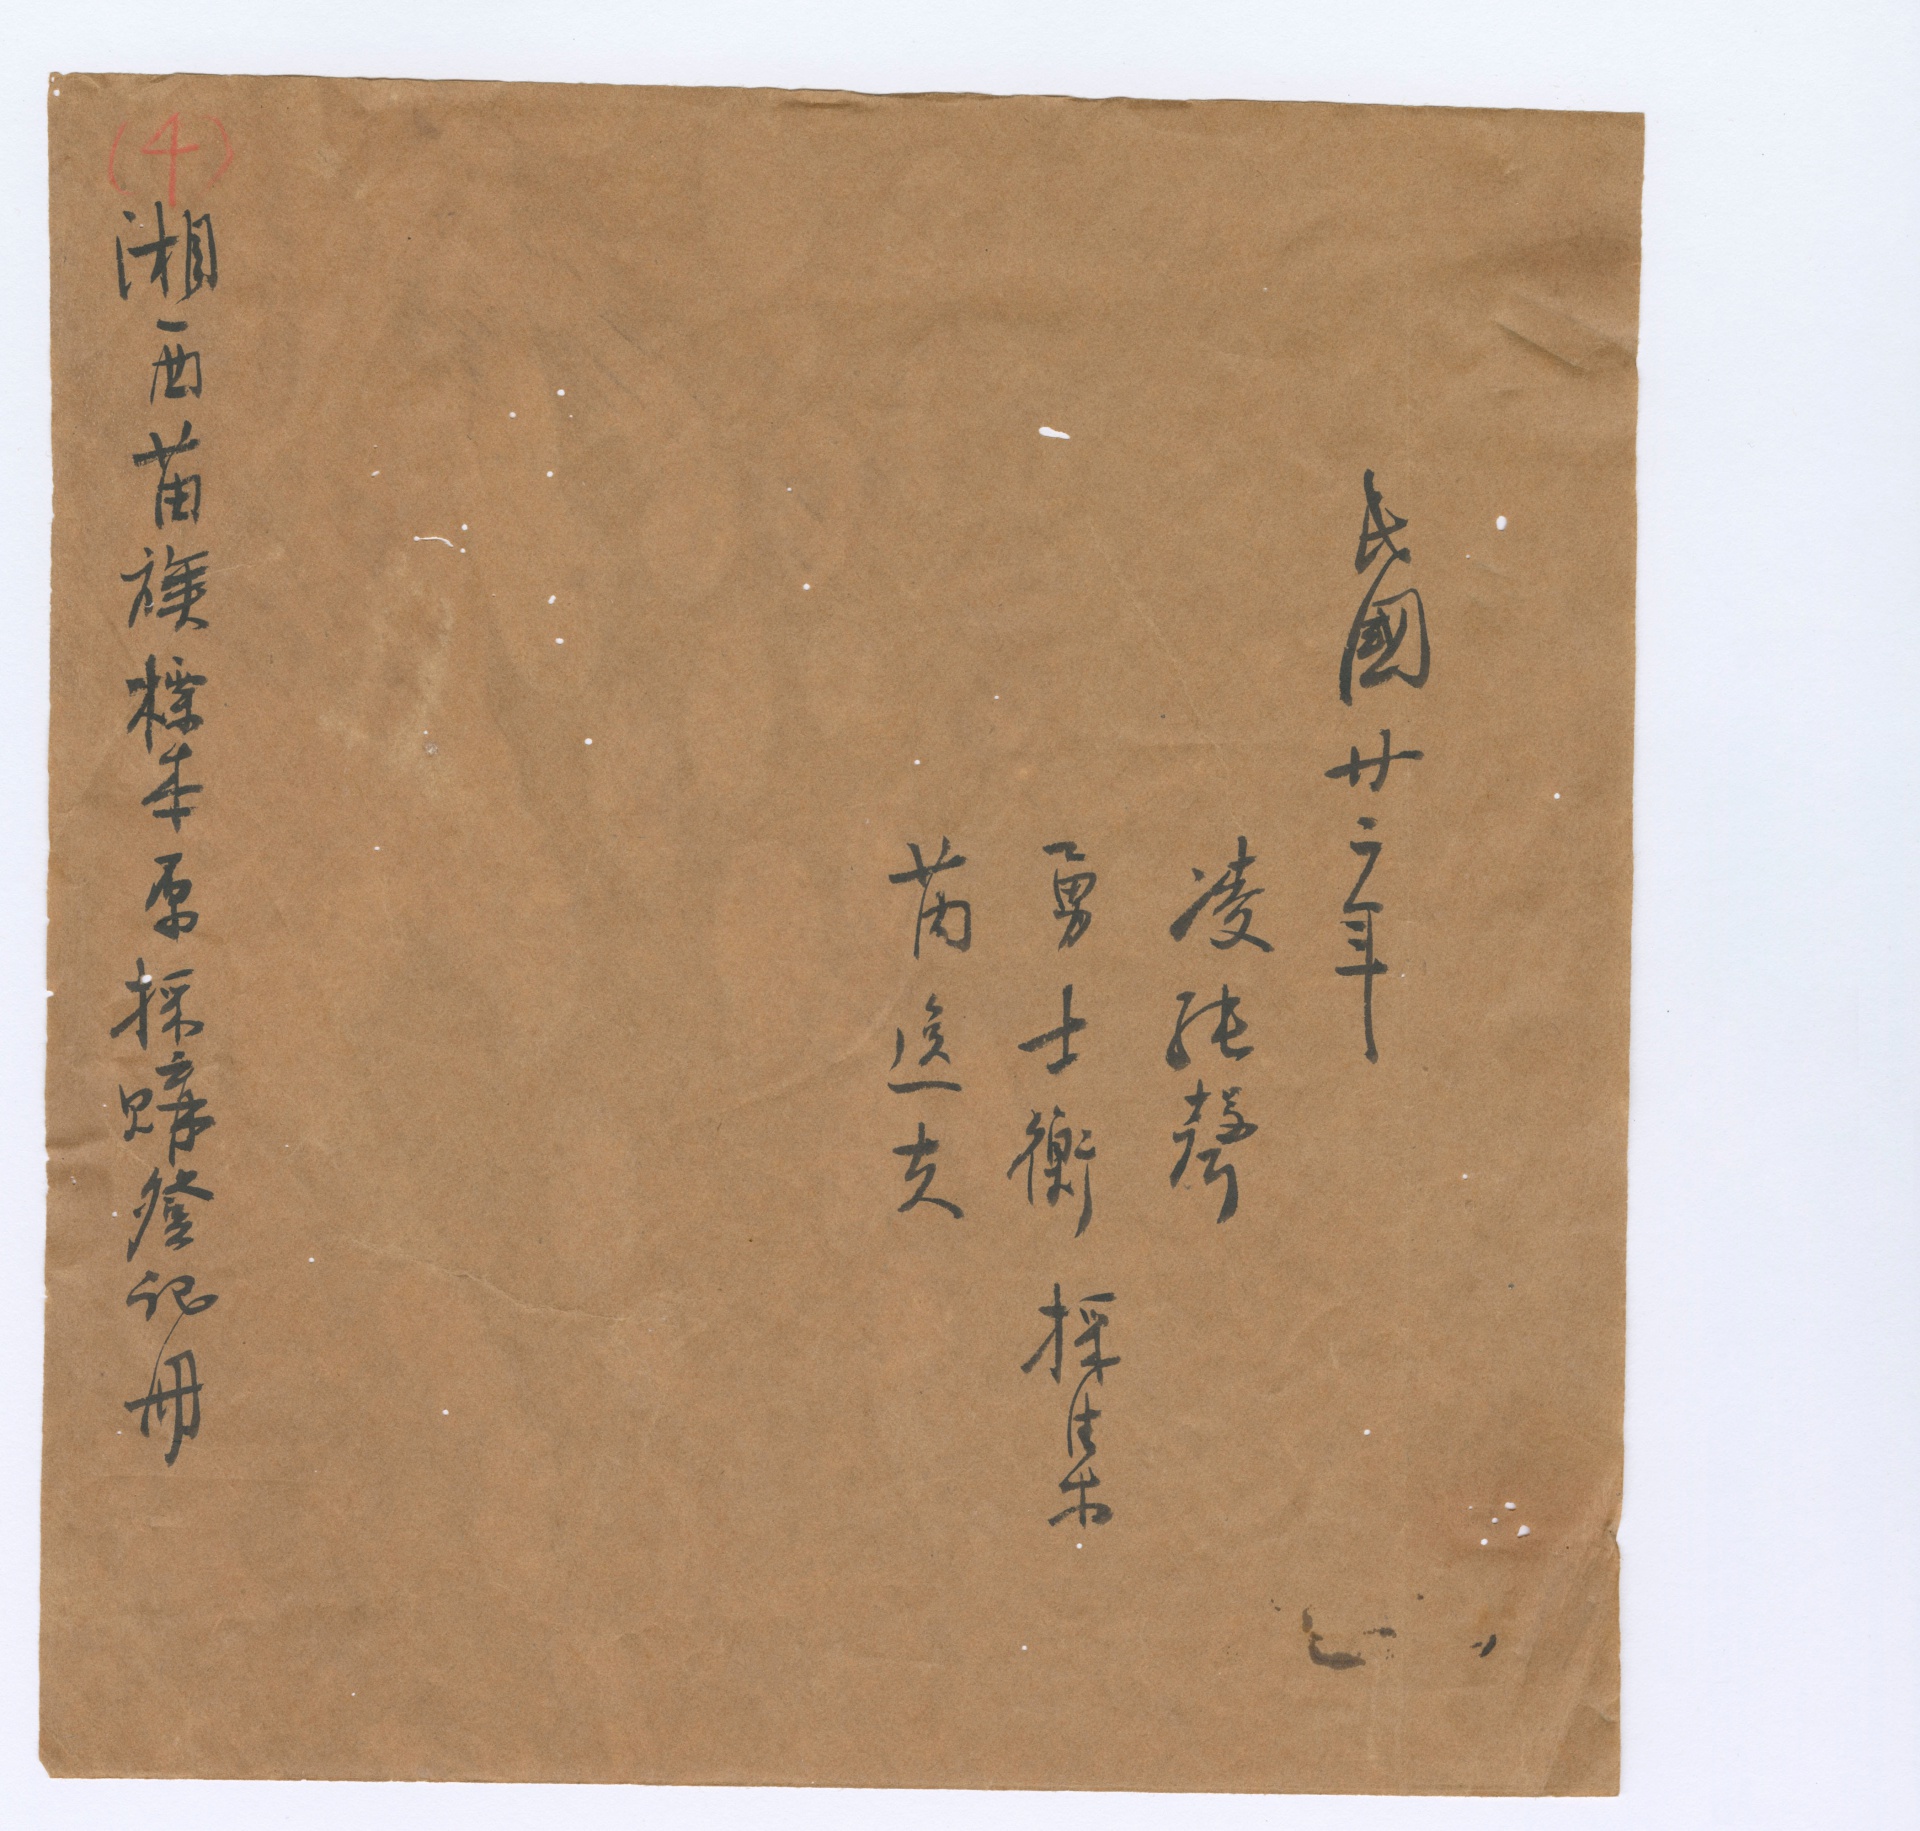 民國廿二年
凌純聲
勇士衡 採集
芮逸夫
(4)
湘西苗族標本原採購登記冊